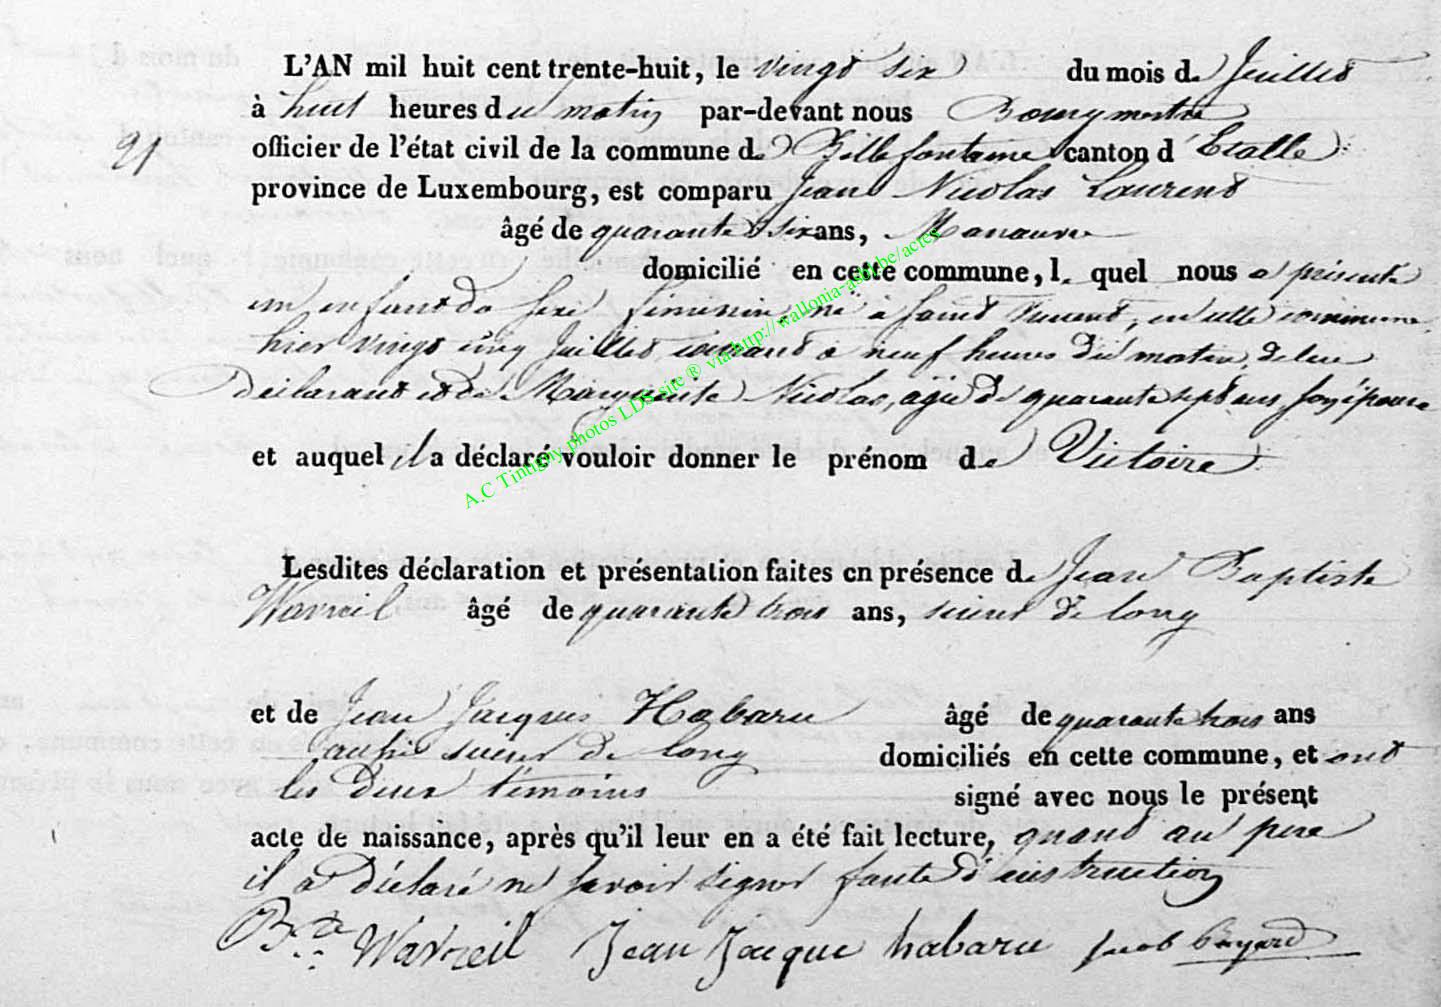 L'AN mil huit cent trente-huit, le vingt six du mois de Juillet
à huit heures du matin par-devant nous Bourgmestre
officier de l'état civil de la commune de Villefontaine canton d'Etalle
91
province de Luxembourg, est comparu Jean Nicolas Laurent
âgé de quarante six ans, Manœuvre
domicilié en cette commune, l quel nous a présenté
un enfant du sexe féminin, né à Saint Vincent, en cette commune
hier vingt cinq Juillet courant à neuf heures du matin, de lui
déclarant et de Marguerite Nicolas, agée de quarante sept ans, son épouse
et auquel il a déclaré vouloir donner le prénom de Victoire
A.C Tintigny photos LDS site ® via http://wallonia-asbl.be/actes
Lesdites déclaration et présentation faites en présence de Jean Baptiste
Wavreil âgé de quarante trois ans, scieur de long
et de Jean Jacques Habaru âgé de quarante trois ans
aussi scieur de long domiciliés en cette commune, et ont
les deux témoins signé avec nous le présent
acte de naissance, après qu'il leur en a été fait lecture, quand au pere
il a déclaré ne savoir signer faute d'instruction
Bte Wavreil Jean Jacque habaru Jacob Guyard